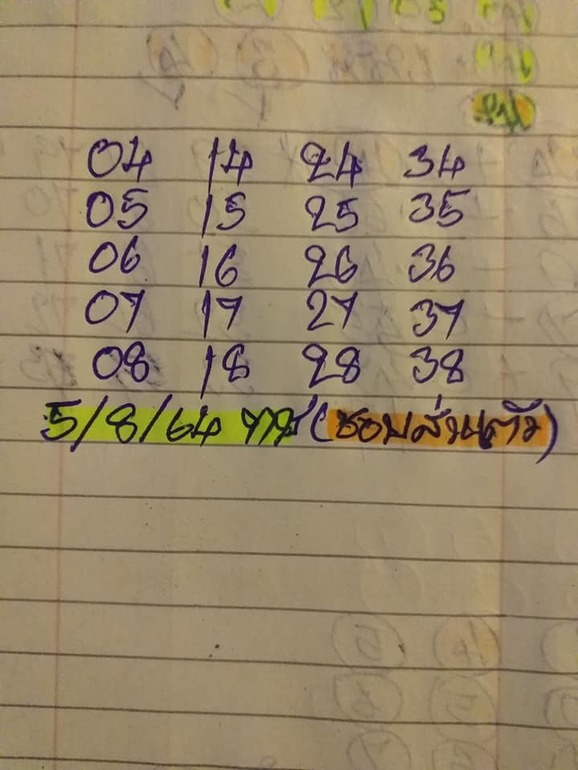 04 14 24 34
05 15 25 35
06 16 26 36
07 17 27 37
08 18 28 38
5/8/64 (ชอบส่วนตัว)